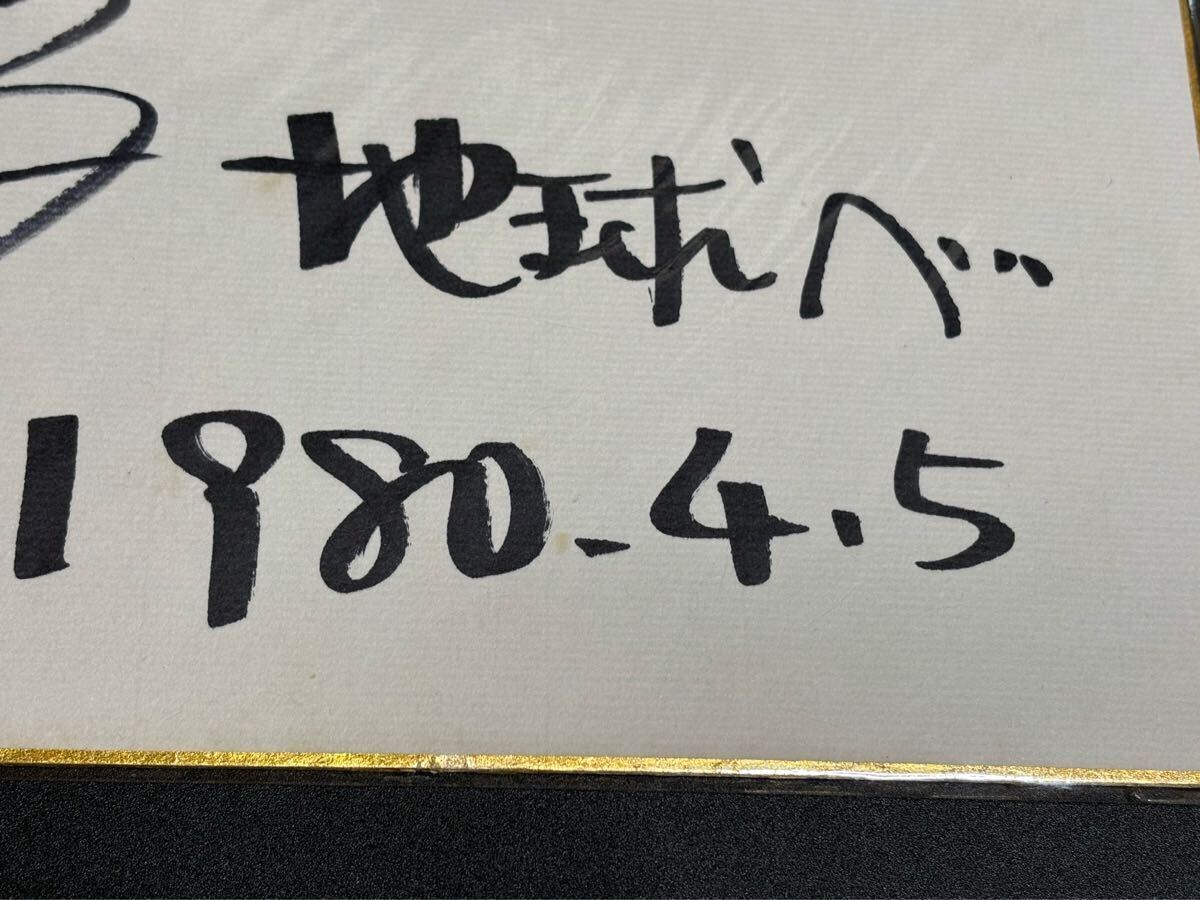 地球へ…
1980.4.5